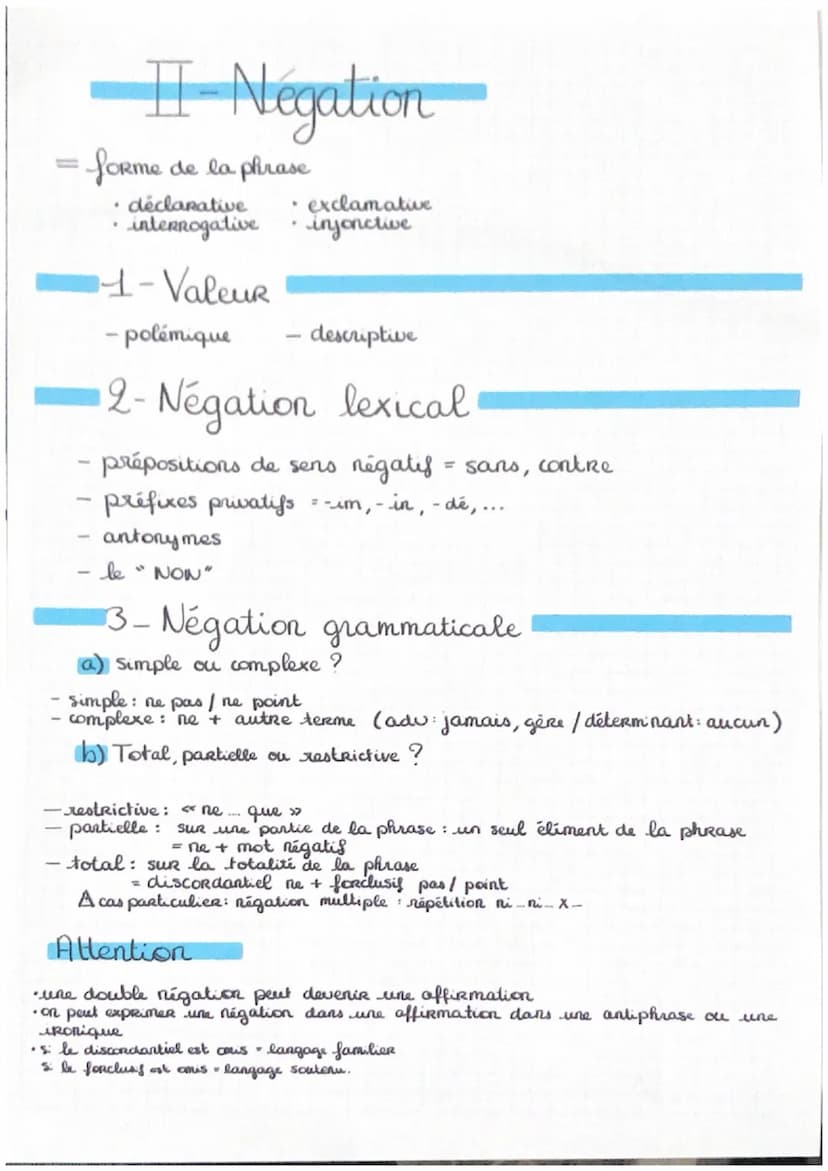 II - Négation
= forme de la phrase
· déclarative · exclamative
· interrogative · injonctive
1 - Valeur
- polémique - descriptive
2 - Négation lexical
- prépositions de sens négatif = sans, contre
- préfixes privatifs = -im, -in, -dé, ...
- antonymes
- le "NON"
3 - Négation grammaticale
a) Simple ou complexe ?
- simple : ne pas / ne point
- complexe : ne + autre terme (adv : jamais, gère / déterminant : aucun)
b) Total, partielle ou restrictive ?
- restrictive : « ne ... que »
- partielle : sur une partie de la phrase : un seul élément de la phrase
= ne + mot négatif
- total : sur la totalité de la phrase
= discordantiel ne + forclusif pas / point
cas particulier : négation multiple : répétition ni _ ni _ X _
Attention
· une double négation peut devenir une affirmation
· on peut exprimer une négation dans une affirmation dans une antiphrase ou une
ironique
· si le discordantiel est omis = langage familier
si le forclusif est omis = langage soutenu.